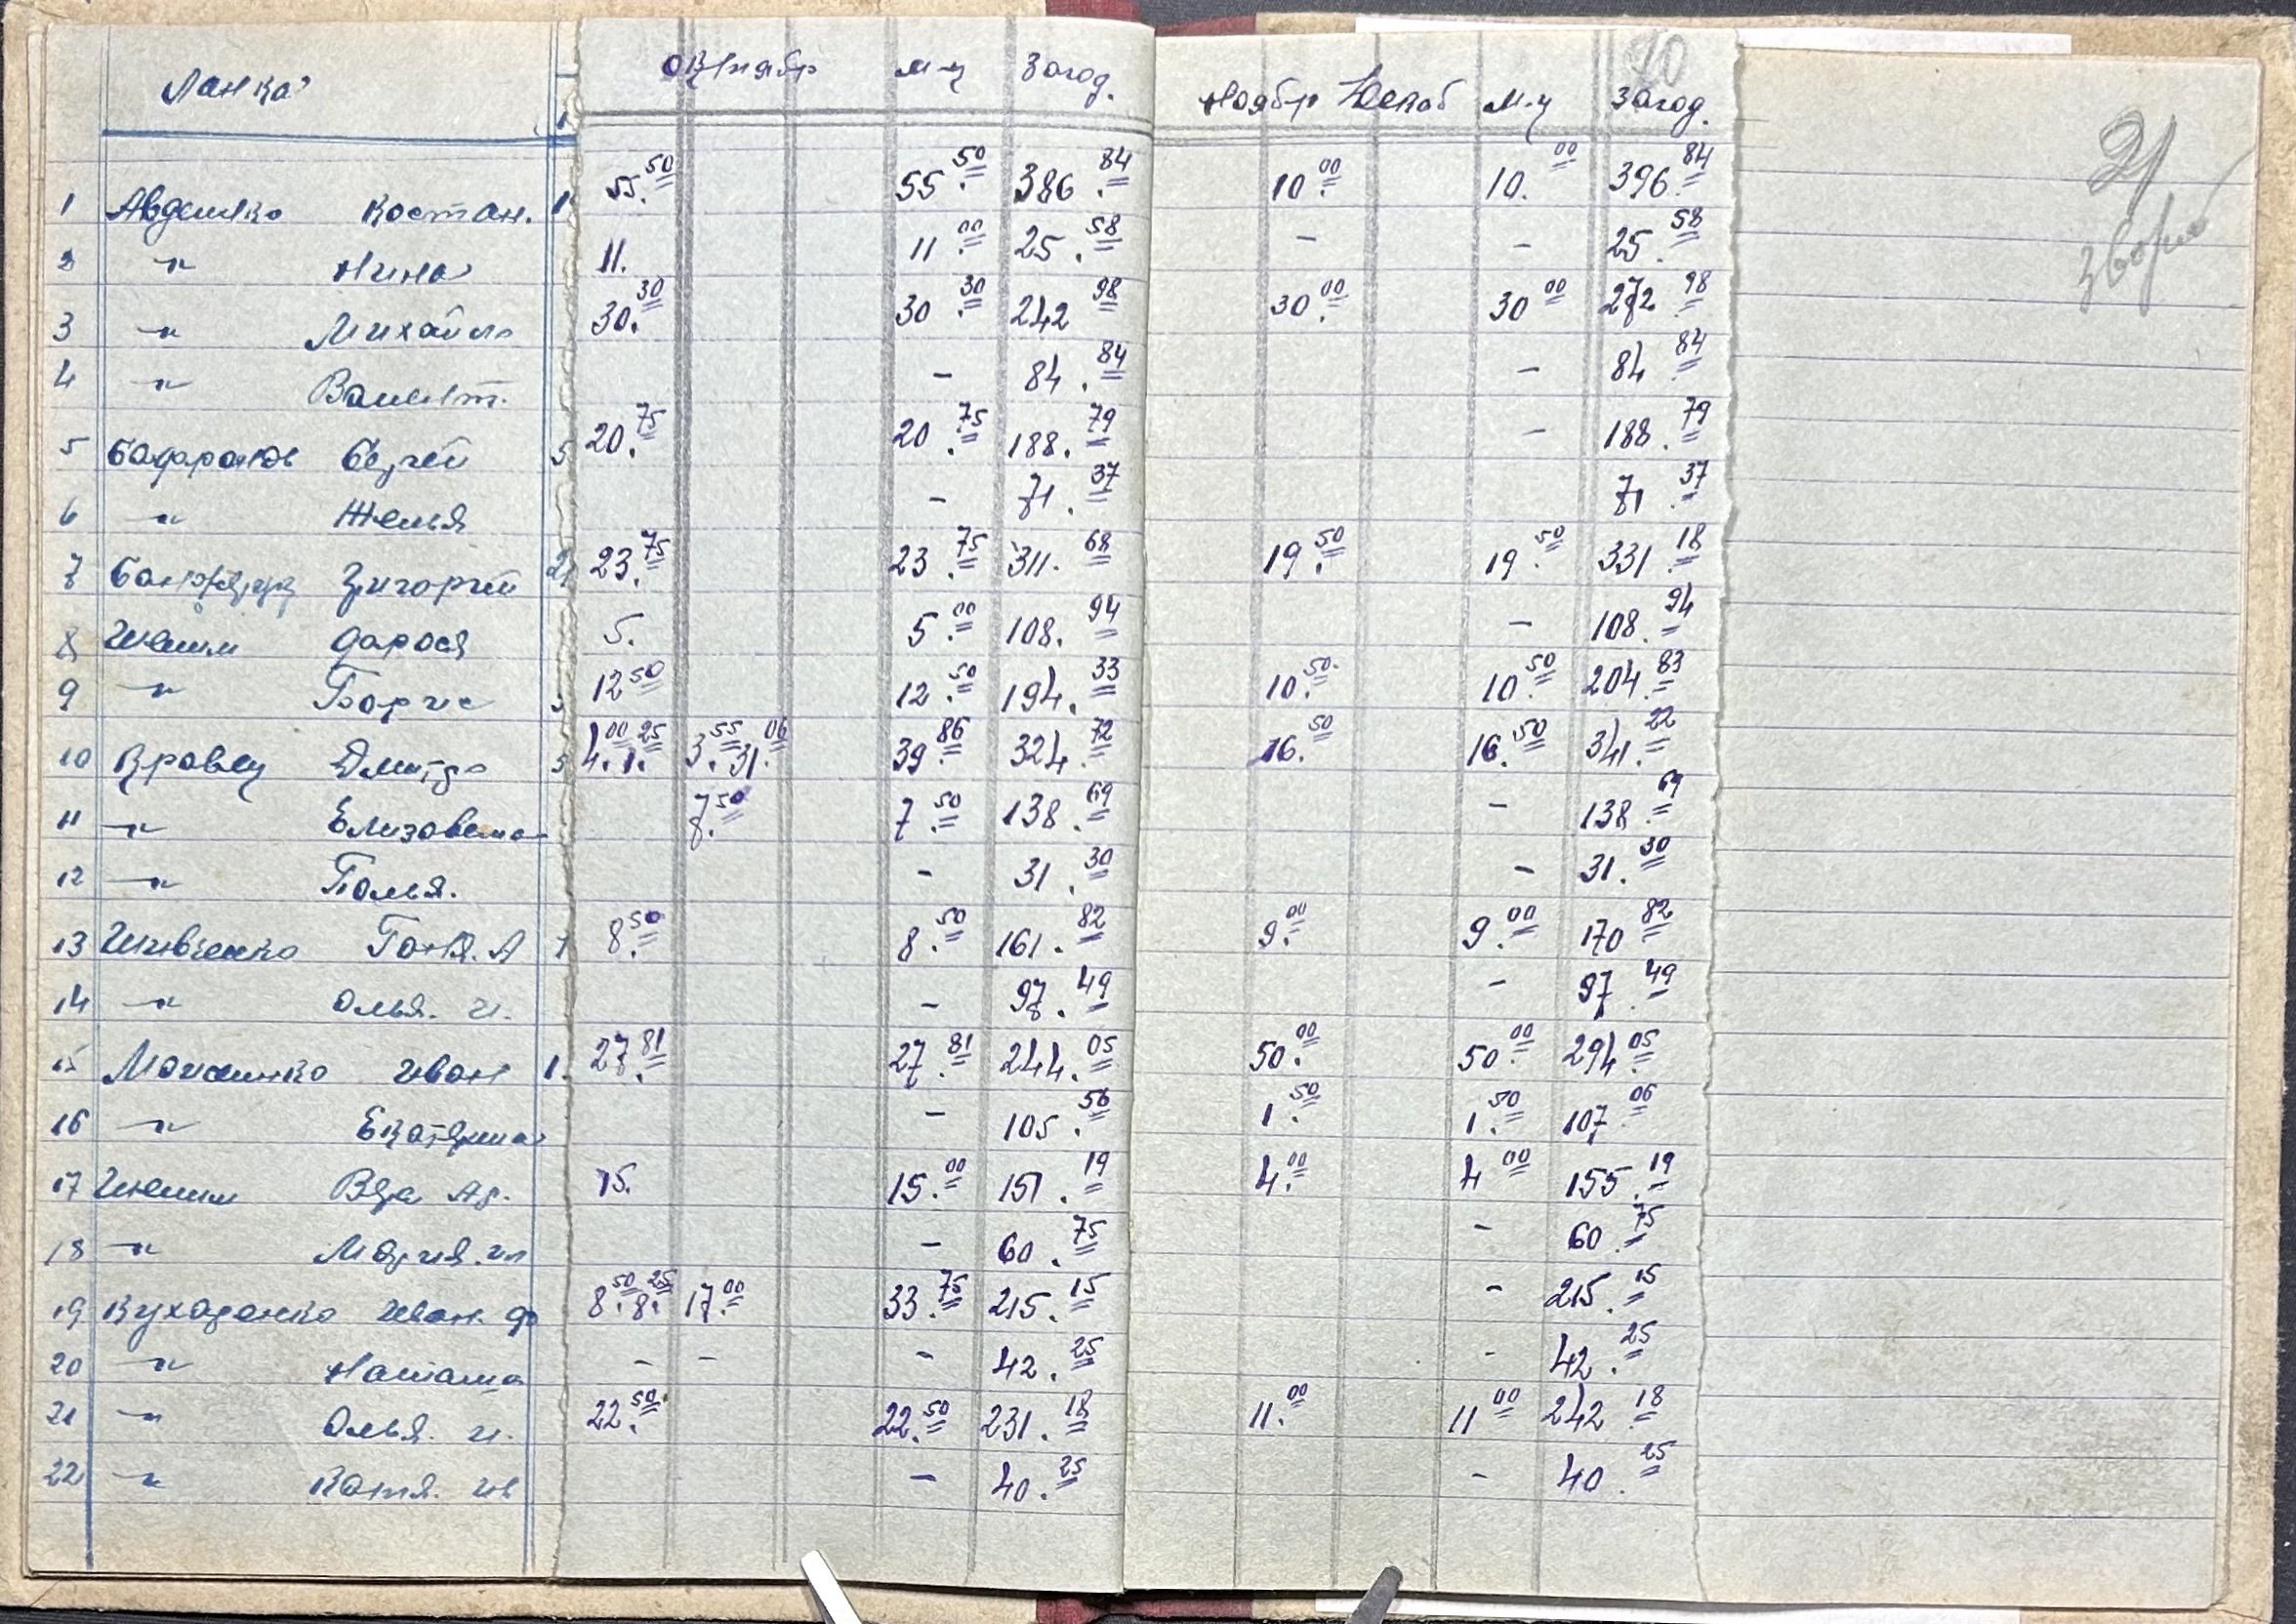 Ланка октябр м-ц Загод. ноябр м-ц Загод. 20
21
1 Авдеинко Костан. 55.50 55.50 386.84 10.00 10.00 396.84
2 " Нина 11. 11.00 25.58 - - 25.58
3 " Михайло 30.30 30.30 242.98 30.00 30.00 272.98
4 " Валент. - 84.84 - 84.84
5 Сергей 20.75 20.75 188.79 - 188.79
6 " - 71.37 71.37
7 Григорий 23.75 23.75 311.68 19.50 19.50 331.18
8 Дарося 5. 5.00 108.94 - 108.94
9 " Борис 12.50 12.50 194.33 10.50 10.50 204.83
10 Кравец Дмитро 4.00 1.25 3.55 31.06 39.86 324.72 16.50 16.50 341.22
11 " Елизовета 7.50 7.50 138.69 - 138.69
12 " Полья. - 31.30 - 31.30
13 Шевченко Ганя. А 8.50 8.50 161.82 9.00 9.00 170.82
14 " Олья. И. - 97.49 - 97.49
15 Моисиенко Иван 27.81 27.81 244.05 50.00 50.00 294.05
16 " Екатерина - 105.56 1.50 1.50 107.06
17 15. 15.00 151.19 4.00 4.00 155.19
18 " Мария - 60.75 - 60.75
19 Кухаренко Иван. Ф 8.50 8.25 17.00 33.75 215.15 - 215.15
20 " Наташа - - - 42.25 - 42.25
21 " Олья. И. 22.50 22.50 231.18 11.00 11.00 242.18
22 " Катя. Ив - 40.25 - 40.25